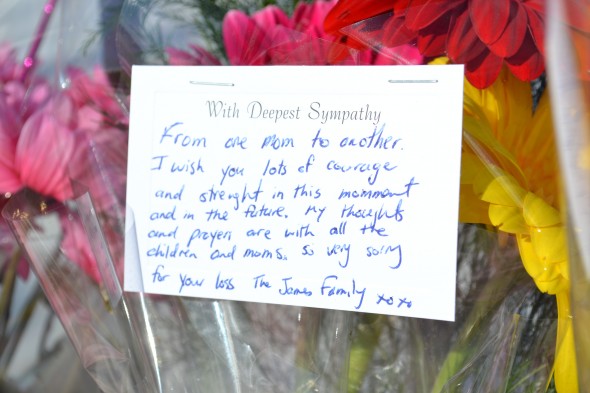 With Deepest Sympathy
From one mom to another.
I wish you lots of courage
and strenght in this momment
and in the future. My thoughts
and prayers are with all the
children and moms. So very sorry
for your loss The James Family xoxo